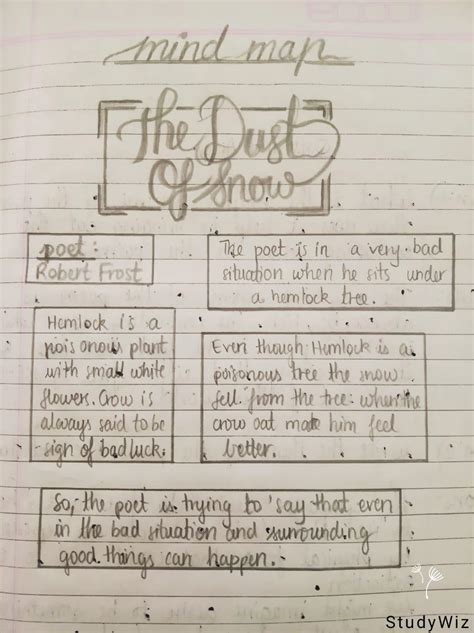 mind map
The Dust
Of Snow
poet:
Robert Frost
The poet is in a very bad
situation when he sits under
a hemlock tree.
Hemlock is a
poisonous plant
with small white
flowers. Crow is
always said to be
sign of bad luck.
Even though Hemlock is a
poisonous tree the snow
fell from the tree: when the
crow oat make him feel
better.
So, the poet is trying to say that even
in the bad situation and surrounding
good things can happen.
StudyWiz